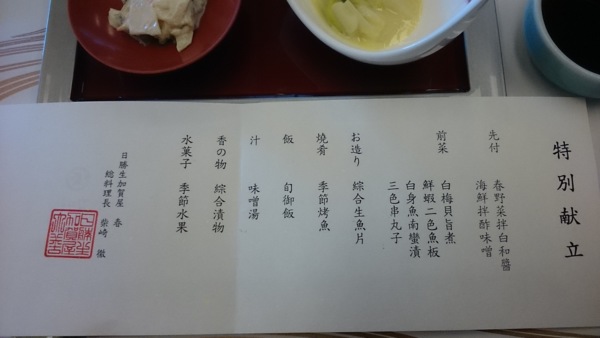 特別献立
先付 春野菜拌白和醬
海鮮拌酢味噌
前菜 白梅貝旨煮
鮮蝦二色魚板
白身魚南蠻漬
三色串丸子
お造り 綜合生魚片
燒肴 季節烤魚
飯 旬御飯
汁 味噌湯
香の物 綜合漬物
水菓子 季節水果
日勝生加賀屋 春
総料理長 柴崎 徹